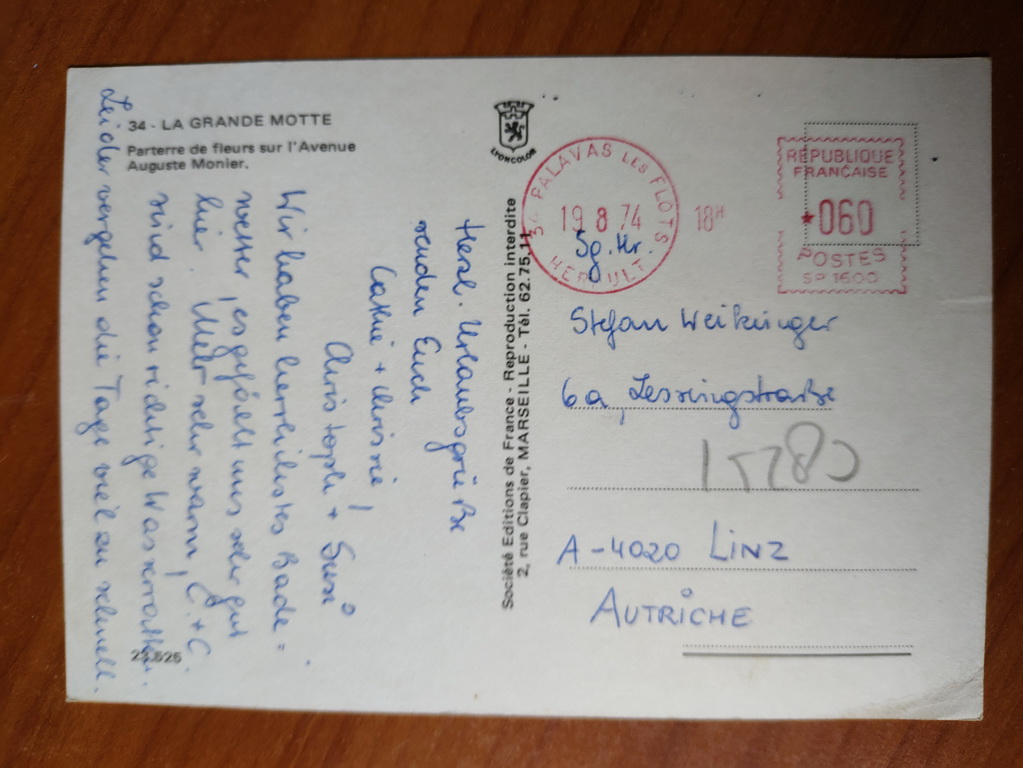 34 - LA GRANDE MOTTE
Parterre de fleurs sur l'Avenue
Auguste Monier.
LYONCOLOR
Herzl. Urlaubsgrüße
senden Euch
+ Chrissie!
Christoph + Susi
Wir haben herrlichstes Bade=
wetter, es gefällt uns sehr gut
hier. Meer sehr warm, C.+C.
sind schon richtige Wasserratten.
Leider vergehen die Tage viel zu schnell.
23.525
Société Editions de France - Reproduction interdite
2, rue Clapier, MARSEILLE - Tél. 62.75.11
34 PALAVAS LES FLOTS
19 8 74
HERAULT
18H
REPUBLIQUE
FRANÇAISE
060
POSTES
SP 1600
Sg. Hr.
Stefan Weikinger
6a, Lessingstraße
A-4020 LINZ
AUTRICHE